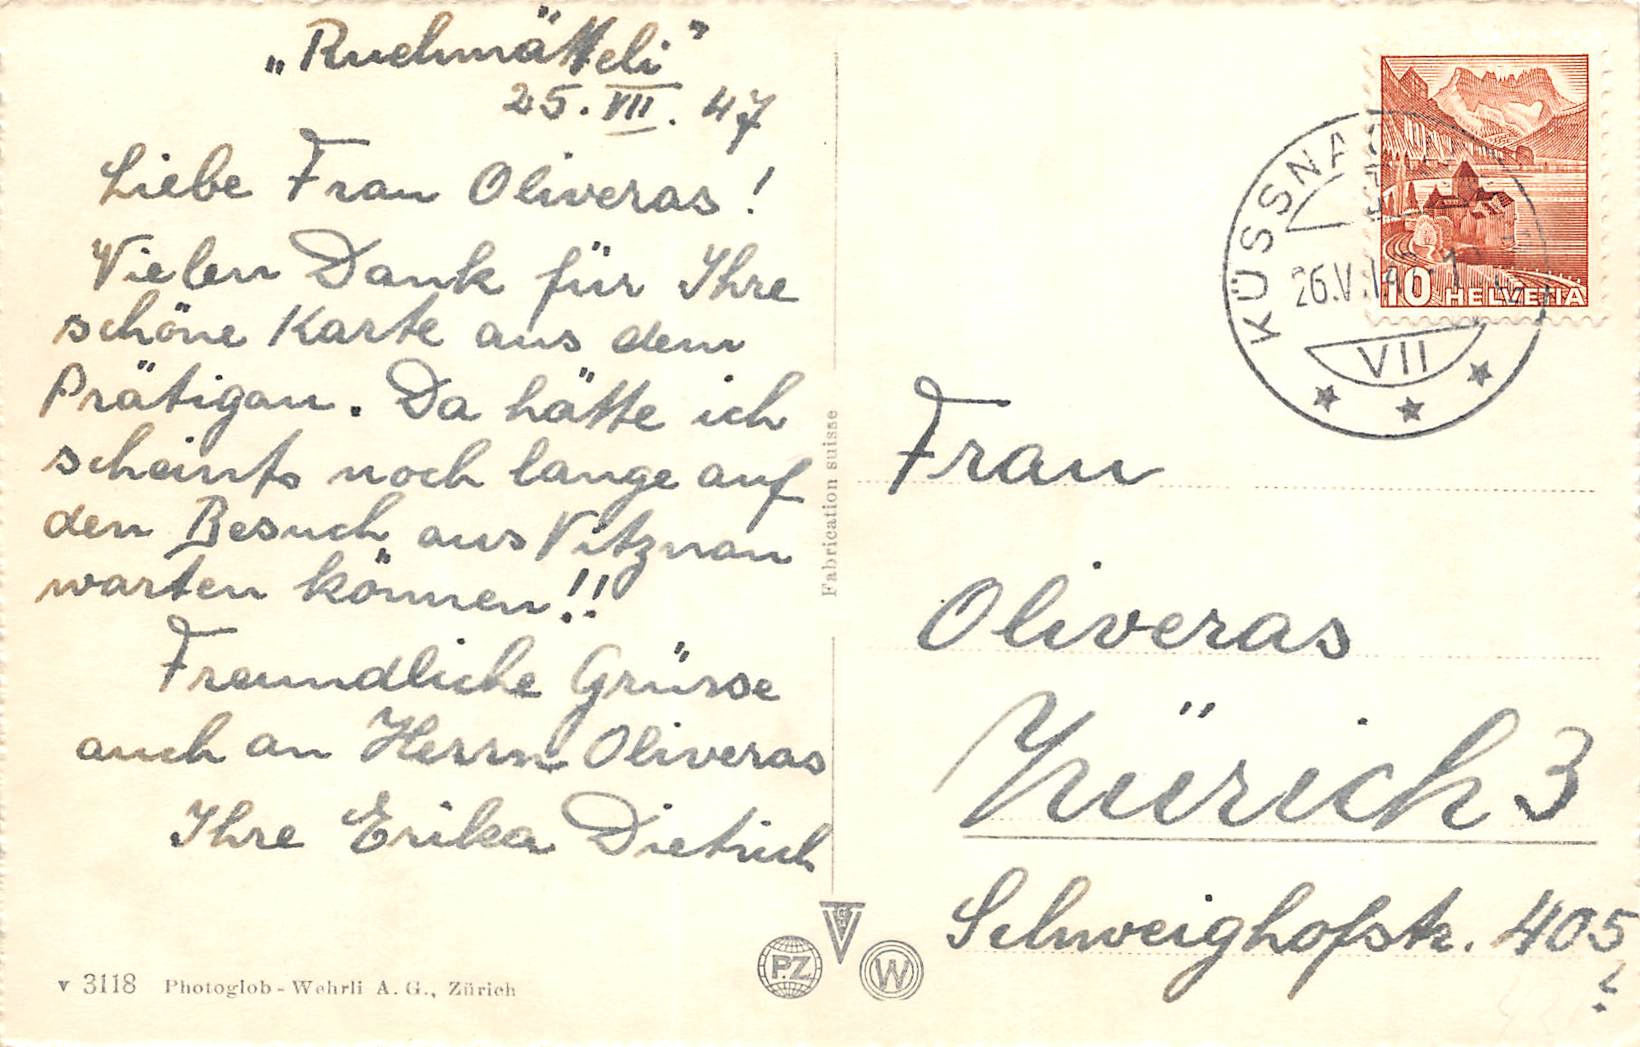 „Ruchmätteli”
25. VII. 47
Liebe Frau Oliveras!
Vielen Dank für Ihre
schöne Karte aus dem
Prätigau. Da hätte ich
scheints noch lange auf
den Besuch aus Vitznau
warten können!!
Freundliche Grüsse
auch an Herrn Oliveras
Ihre Erika Dietrich
v 3118 Photoglob-Wehrli A. G., Zürich
Fabrication suisse
PZ
W
10 HELVETIA
VII
Frau
Oliveras
Zürich 3
Schweighofstr. 405